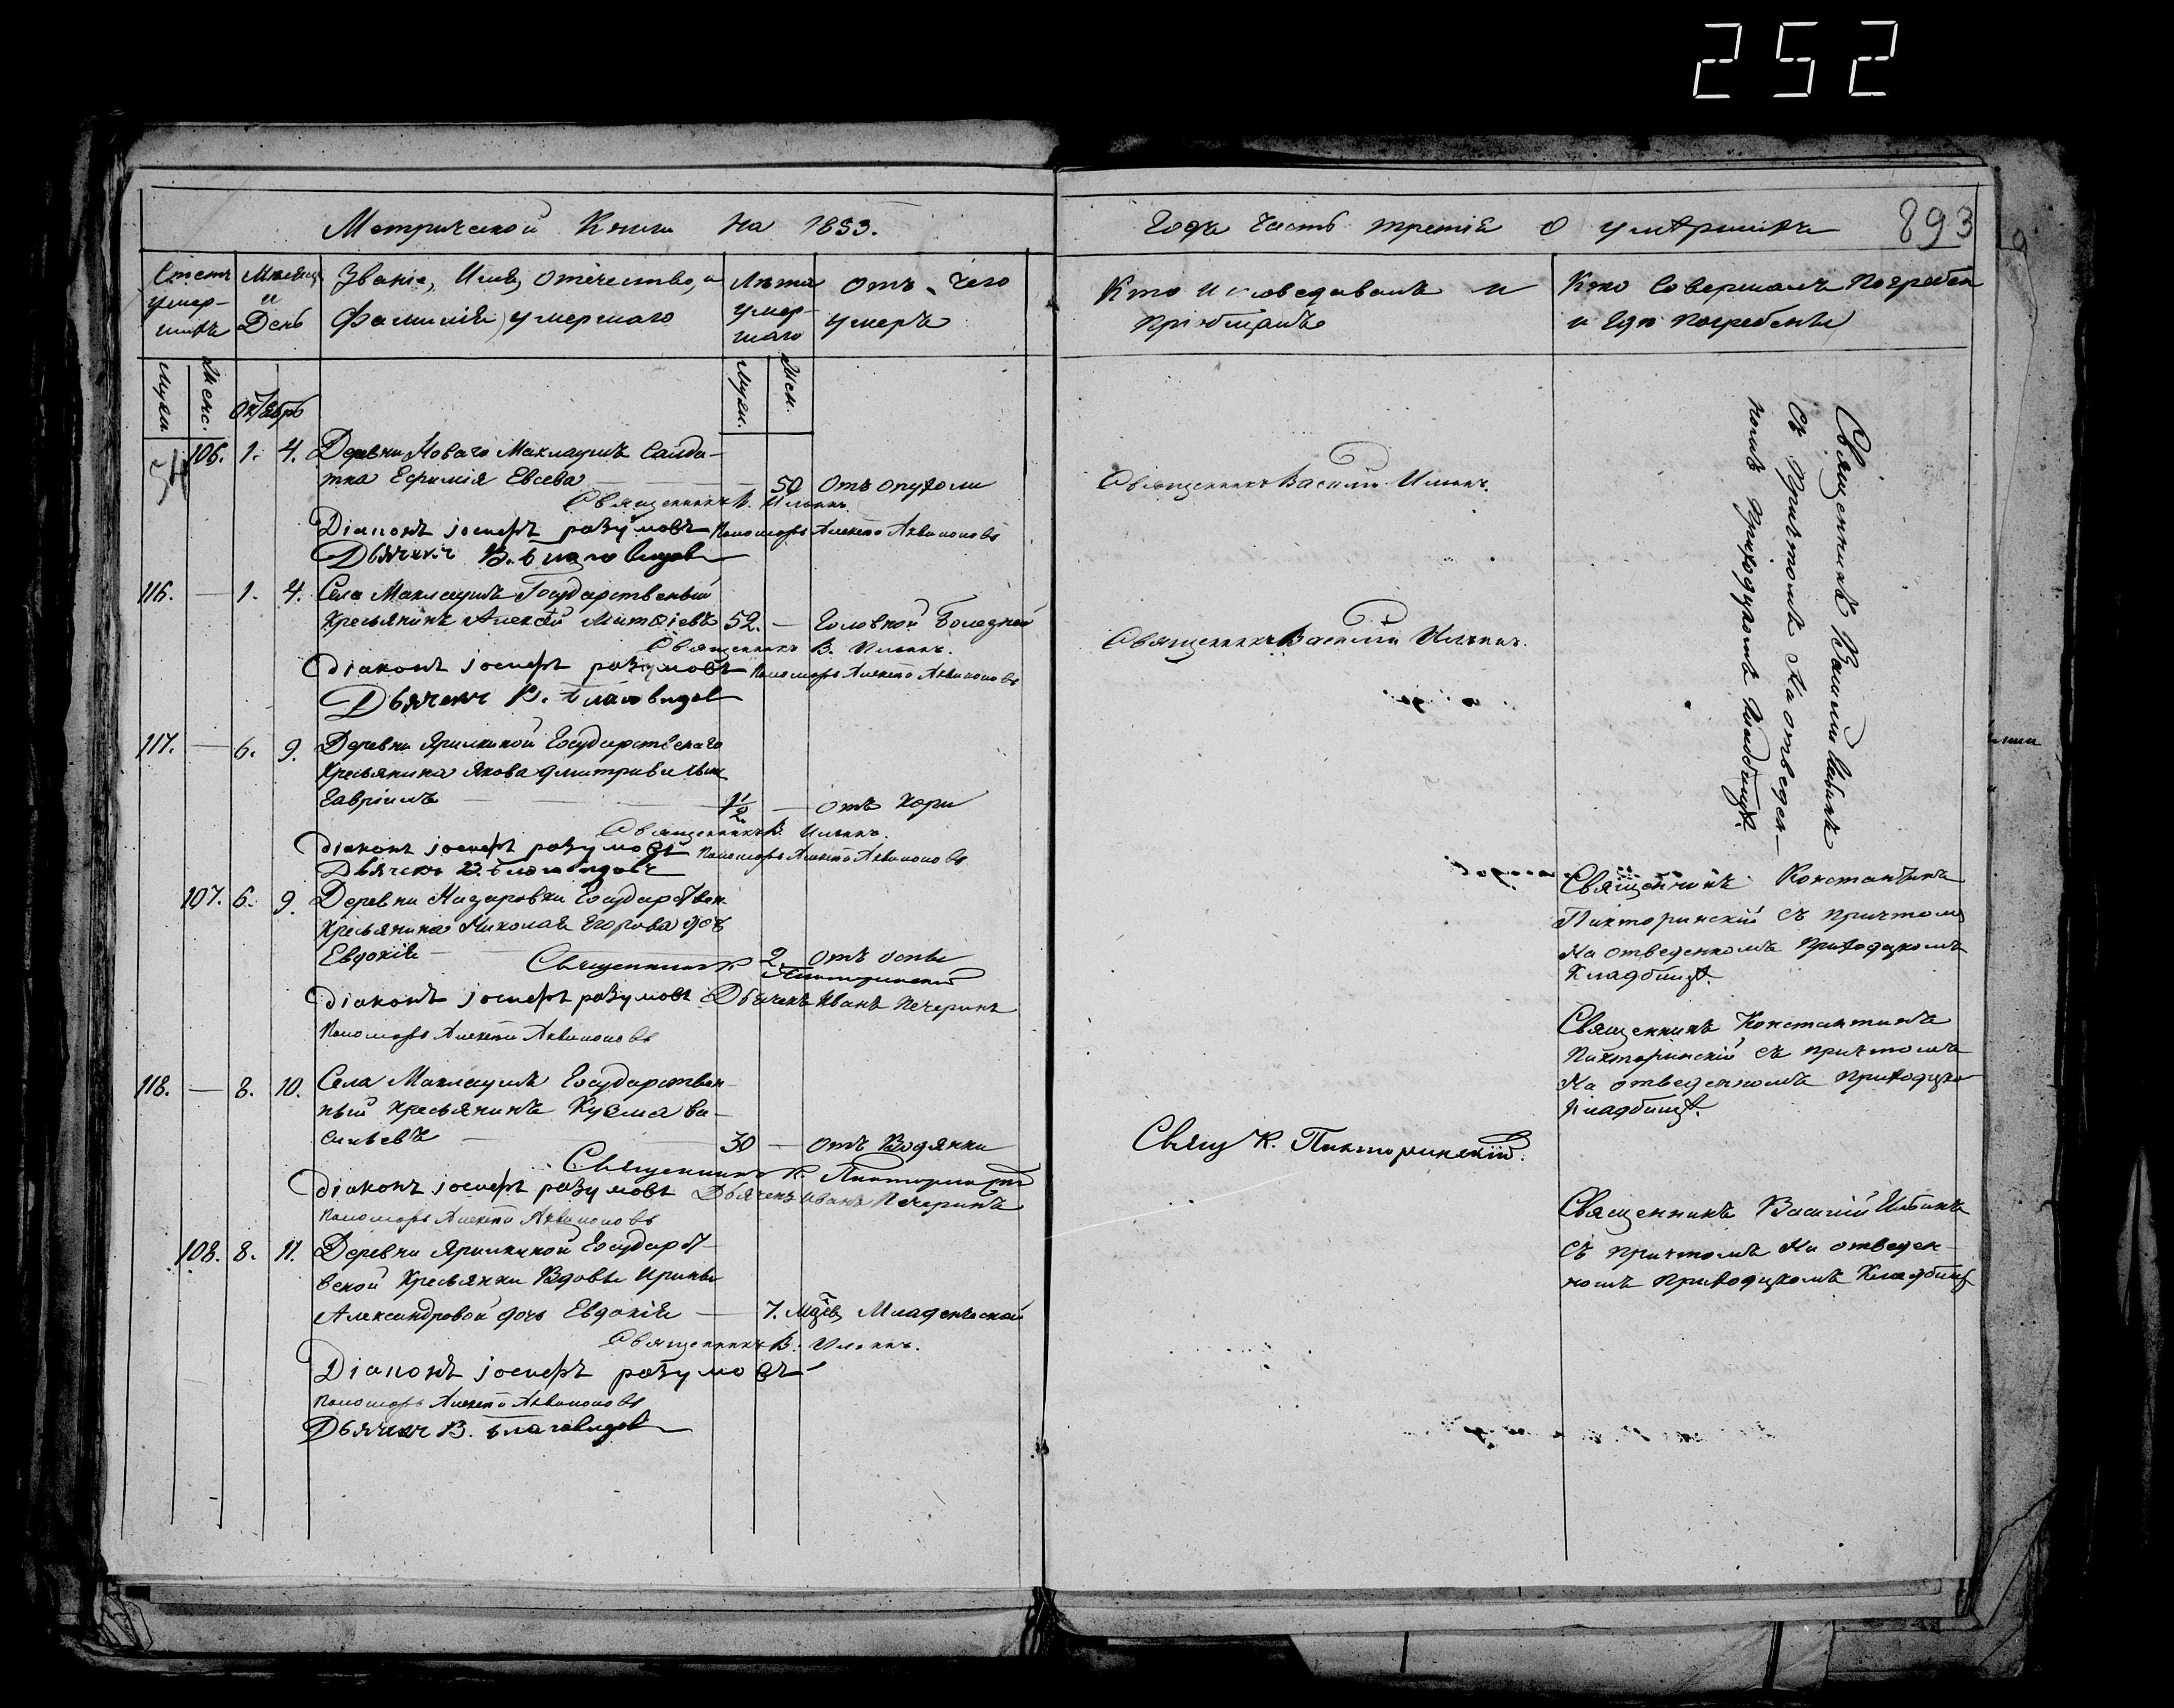 252
Метрической Книги на 1853.
Года Часть третія о умершихъ
893
Счетъ умер-шихъ
Мѣсяцъ и День
Званіе, Имя, отечество, и
фамилія умершаго
Лѣта умер-шаго
отъ чего
умеръ
Кто исповедывалъ и
приобщалъ
Кто Совершалъ погребен
и где погребены
Мужс.
Женс.
Октябрь
Мужс.
Жен.
106. 1. 4. Деревни Новаго Маклауша Салда-
тка Ефимія Евсева 50 отъ опухоли
Священникъ В. Ильинъ.
Діаконъ іосифъ разумовъ Пономарь Алексей
Дьячекъ В. Благовидов
Священникъ Василій Ильинъ.
Священникъ Василій Ильинъ
Съ Причтомъ На отведен-
номъ Приходцкомъ Кладбищѣ.
116. — 1. 4. Села Маклауша Государственый
Кресьянинъ Алексѣй 52. — Головной болезней
Священникъ В. Ильинъ.
Діаконъ іосифъ разумовъ Пономарь Алексей
Дьячекъ В. Благовидов
Священникъ Василій Ильинъ.
117. — 6. 9. Деревни Ярилкиной Государственаго
Кресьянина Якова Дмитриева сын
Гавріилъ 1 1/2 — отъ Кори
Священникъ В. Ильинъ.
Діаконъ іосифъ разумовъ Пономарь Алексей
Дьячекъ В. Благовидовъ
107. 6. 9. Деревни Назаровки Государствен
Кресьянина Николая Егорова доч
Евдокія 2. отъ оспы
Священникъ К. Пикторинский
Діаконъ іосифъ разумовъ Дьячекъ Иванъ Печеринъ
Пономарь Алексей
Священникъ Константинъ
Пикторинскій съ причтомъ
На отведенномъ приходцкомъ
Кладбищѣ.
118. — 8. 10. Села Маклауша Государствен-
ный кресьянинъ Кузма ва-
сильевъ 30 — отъ Водянки
Священникъ К. Пикторинскій
Діаконъ іосифъ разумовъ Дьячекъ Иванъ Печеринъ
Пономарь Алексей
Свящ К. Пикторинскій.
Священникъ Константинъ
Пикторинскій съ причтомъ
На отведенномъ приходцко
Кладбищѣ.
108. 8. 11. Деревни Ярилкиной Государст-
веной Кресьянки Вдовы Ирины
Александровой дочь Евдокія — 7. мцев Младенческой
Священникъ В. Ильинъ.
Діаконъ іосифъ разумовъ
Пономарь Алексей
Дьячекъ В. Благовидов
Священникъ Василій Ильинъ
съ причтомъ На отведен-
номъ приходцкомъ Кладбищѣ